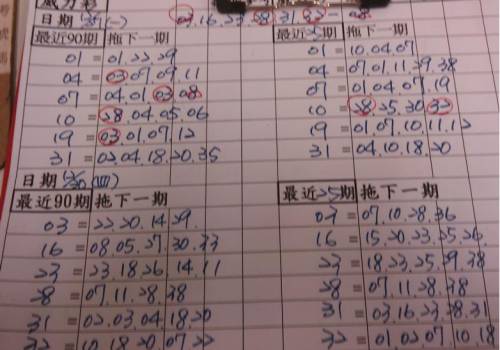 威力彩
日期 (一) 03.16.23.28.31.32
最近90期 拖下一期 最近25期 拖下一期
01 = 01.22.29 01 = 10.04.07
04 = 03.07.09.11 04 = 07.01.11.29.38
07 = 04.01.03.08 07 = 01.04.07.19
10 = 28.04.05.06 10 = 28.25.30.32
19 = 03.01.07.12 19 = 01.07.10.11.12
31 = 02.04.18.20.35 31 = 04.10.18.20
日期
最近90期 拖下一期 最近25期 拖下一期
03 = 22.20.14.29. 03 = 07.10.28.36
16 = 08.05.27.30.33 16 = 15.20.23.25.26.
23 = 23.18.26.14.11 23 = 18.23.25.29.38
28 = 07.11.28.38 28 = 07.11.28.38
31 = 02.03.04.18.20 31 = 03.16.23.28.31
32 = 10.18.20.07.22 32 = 01.02.07.10.18